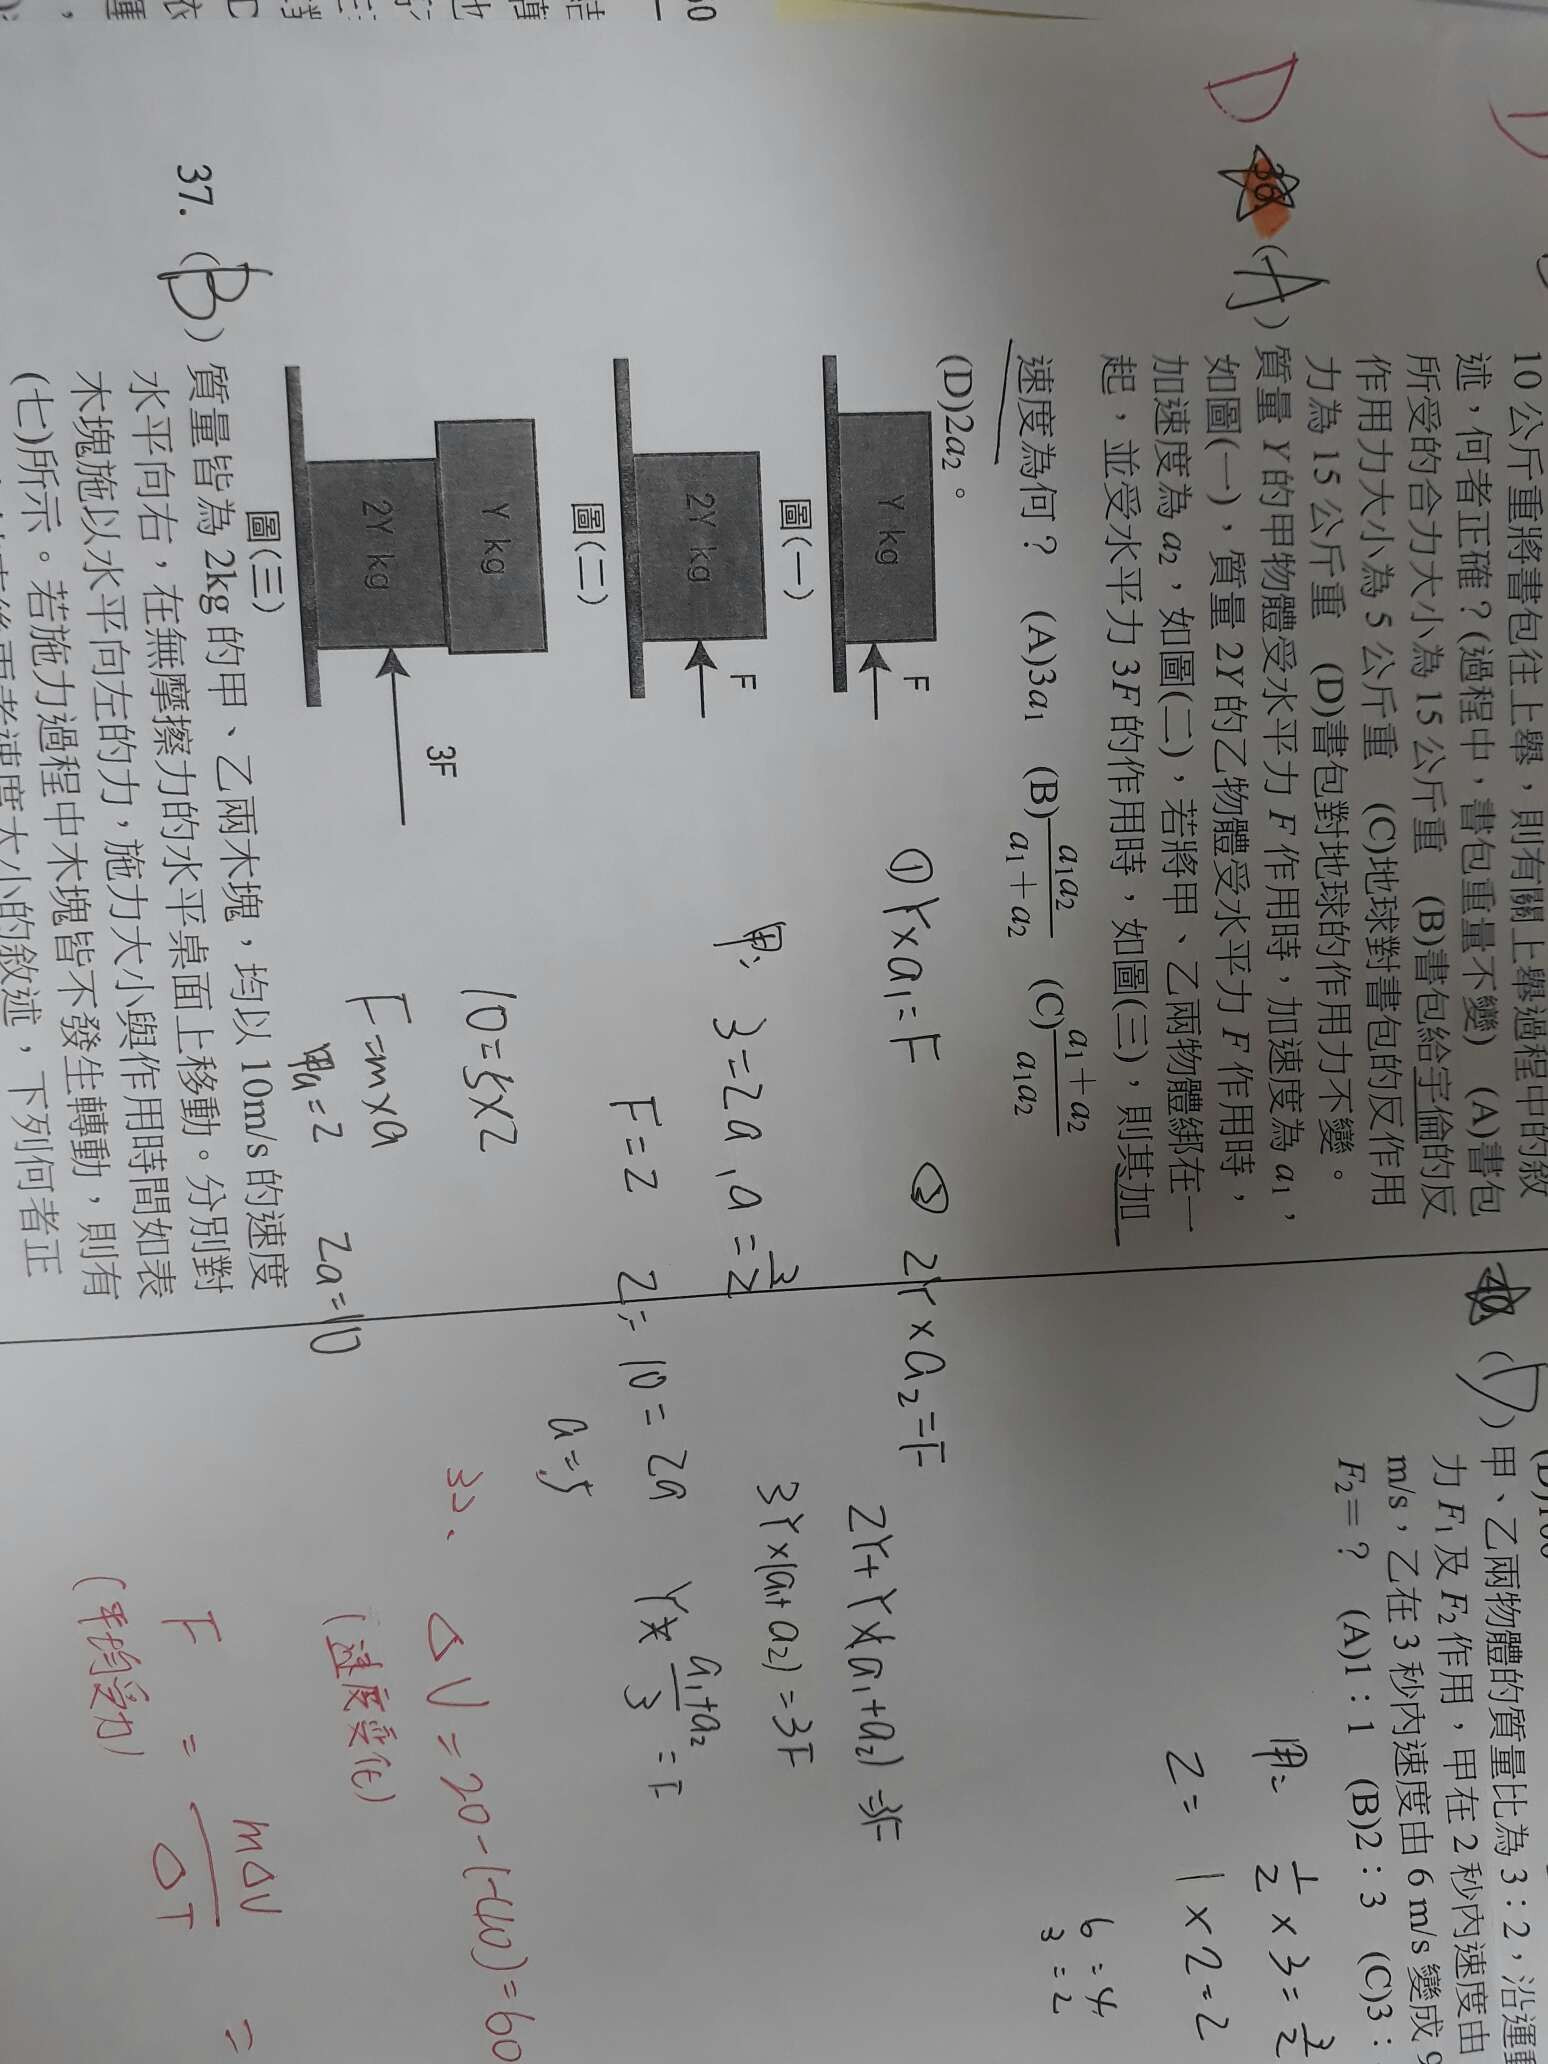 10 公斤重將書包往上舉，則有關上舉過程中的敘
述，何者正確？(過程中，書包重量不變) (A)書包
所受的合力大小為 15 公斤重 (B)書包給宇倫的反
作用力大小為 5 公斤重 (C)地球對書包的反作用
力為 15 公斤重 (D)書包對地球的作用力不變。
D
36. (A) 質量 Y 的甲物體受水平力 F 作用時，加速度為 a₁，
如圖(一)，質量 2Y 的乙物體受水平力 F 作用時，
加速度為 a₂，如圖(二)，若將甲、乙兩物體綁在一
起，並受水平力 3F 的作用時，如圖(三)，則其加
速度為何？ (A)3a₁ (B)a₁a₂/(a₁+a₂) (C)(a₁+a₂)/(a₁a₂)
(D)2a₂。
Y kg
F
圖(一)
2Y kg
F
圖(二)
Y kg
2Y kg
3F
圖(三)
① Y×a₁=F
② 2Y×a₂=F
甲: 3=2a, a=3/2
F=2
乙: 10=2a
a=5
10=5×2
F=m×a
甲a=2
2a=10
2Y+Y×(a₁+a₂)=3F
3Y×(a₁+a₂)=3F
Y×(a₁+a₂)/3=F
37. (B) 質量皆為 2kg 的甲、乙兩木塊，均以 10m/s 的速度
水平向右，在無摩擦力的水平桌面上移動。分別對
木塊施以水平向左的力，施力大小與作用時間如表
(七)所示。若施力過程中木塊皆不發生轉動，則有
兩者速度大小的敘述，下列何者正
40. (D) 甲、乙兩物體的質量比為 3：2，沿運
力 F₁ 及 F₂ 作用，甲在 2 秒內速度由
m/s，乙在 3 秒內速度由 6 m/s 變成 9
F₂＝？ (A)1：1 (B)2：3 (C)3：
甲= 1/2×3=3/2
乙= 1×2=2
6=4
3=2
33、
ΔV=20-(-40)=60
(速度變化)
F = mΔV/ΔT =
(平均受力)